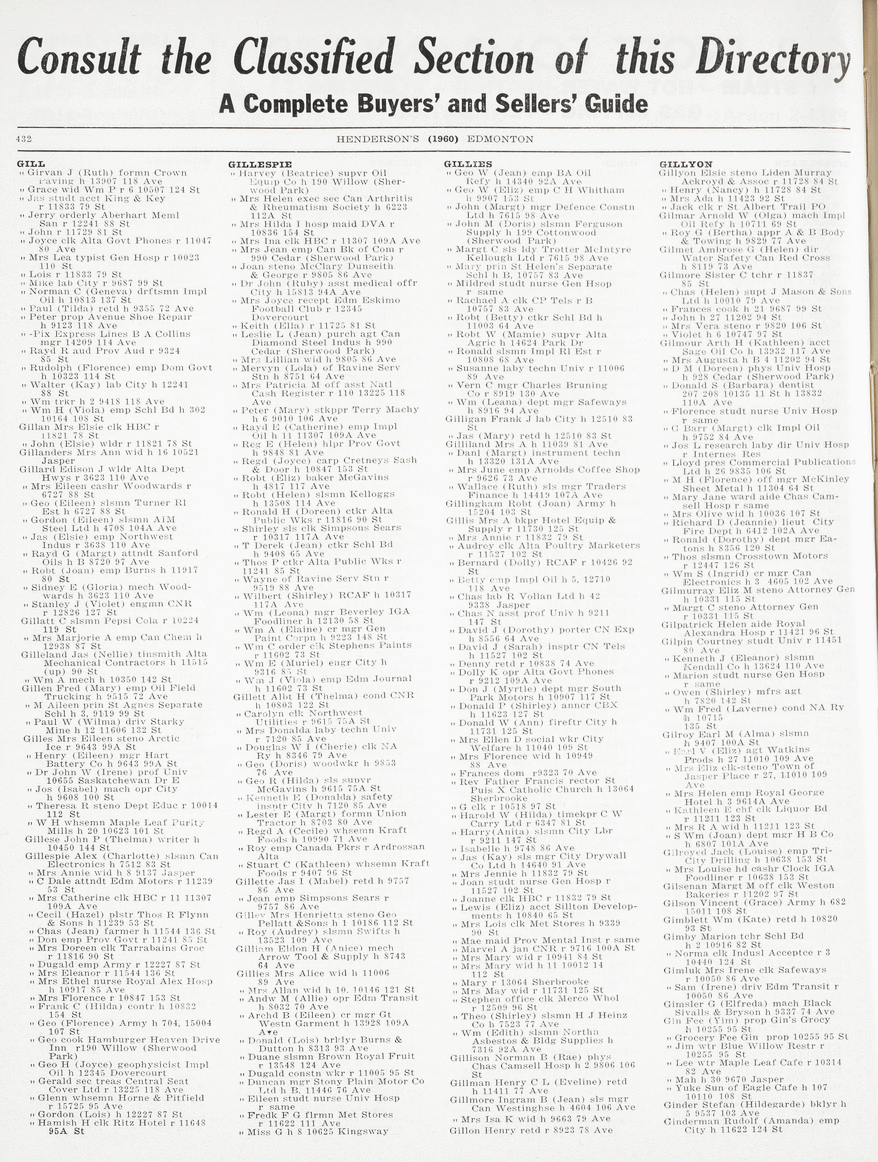 Consult the Classified Section of this Directory
A Complete Buyers' and Sellers' Guide
432
HENDERSON'S (1960) EDMONTON
GILL
" Girvan J (Ruth) formn Crown
Paving h 13907 118 Ave
" Grace wid Wm P r 6 10507 124 St
" Jas studt acct King & Key
r 11833 79 St
" Jerry orderly Aberhart Meml
San r 12241 88 St
" John r 11729 81 St
" Joyce clk Alta Govt Phones r 11047
80 Ave
" Mrs Lea typist Gen Hosp r 10023
110 St
" Lois r 11833 79 St
" Mike lab City r 9687 99 St
" Norman C (Geneva) drftsmn Impl
Oil h 10813 137 St
" Paul (Tilda) retd h 9355 72 Ave
" Peter prop Avenue Shoe Repair
h 9123 118 Ave
" -Pix Express Lines B A Collins
mgr 14209 114 Ave
" Rayd R aud Prov Aud r 9324
85 St
" Rudolph (Florence) emp Dom Govt
h 10323 114 St
" Walter (Kay) lab City h 12241
88 St
" Wm trkr h 2 9418 118 Ave
" Wm H (Viola) emp Schl Bd h 302
10164 108 St
Gillan Mrs Elsie clk HBC r
11821 78 St
" John (Elsie) wldr r 11821 78 St
Gillanders Mrs Ann wid h 16 10521
Jasper
Gillard Edison J wldr Alta Dept
Hwys r 3623 110 Ave
" Mrs Eileen cashr Woodwards r
6727 88 St
" Geo (Eileen) slsmn Turner Rl
Est h 6727 88 St
" Gordon (Eileen) slsmn AIM
Steel Ltd h 4708 104A Ave
" Jas (Elsie) emp Northwest
Indus r 3638 110 Ave
" Rayd G (Margt) attndt Sanford
Oils h B 8720 97 Ave
" Robt (Joan) emp Burns h 11917
80 St
" Sidney E (Gloria) mech Wood-
wards h 3623 110 Ave
" Stanley J (Violet) engmn CNR
r 12826 127 St
Gillatt C slsmn Pepsi Cola r 10224
119 St
" Mrs Marjorie A emp Can Chem h
12938 87 St
Gilleland Jas (Nellie) tinsmith Alta
Mechanical Contractors h 11515
(up) 90 St
" Wm A mech h 10350 142 St
Gillen Fred (Mary) emp Oil Field
Trucking h 9515 72 Ave
" M Aileen prin St Agnes Separate
Schl h 3, 9119 99 St
" Paul W (Wilma) driv Starky
Mine h 12 11606 132 St
Gilles Mrs Eileen steno Arctic
Ice r 9643 99A St
" Henry (Eileen) mgr Hart
Battery Co h 9643 99A St
" Dr John W (Irene) prof Univ
10655 Saskatchewan Dr E
" Jos (Isabel) mach opr City
h 9608 100 St
" Theresa R steno Dept Educ r 10014
112 St
" W H whsemn Maple Leaf Purity
Mills h 20 10623 101 St
Gillese John P (Thelma) writer h
10450 144 St
Gillespie Alex (Charlotte) slsmn Can
Electronics h 7512 83 St
" Mrs Annie wid h 8 9137 Jasper
" C Dale attndt Edm Motors r 11239
53 St
" Mrs Catherine clk HBC r 11 11307
109A Ave
" Cecil (Hazel) plstr Thos R Flynn
& Sons h 11239 53 St
" Chas (Jean) farmer h 11544 136 St
" Don emp Prov Govt r 11241 85 St
" Mrs Doreen clk Tarrabains Groc
r 11816 90 St
" Dugald emp Army r 12227 87 St
" Mrs Eleanor r 11544 136 St
" Mrs Ethel nurse Royal Alex Hosp
h 10917 85 Ave
" Mrs Florence r 10847 153 St
" Frank C (Hilda) contr h 10832
154 St
" Geo (Florence) Army h 704, 15004
107 St
" Geo cook Hamburger Heaven Drive
Inn r190 Willow (Sherwood
Park)
" Geo H (Joyce) geophysicist Impl
Oil h 12345 Dovercourt
" Gerald sec treas Central Seat
Cover Ltd r 13225 118 Ave
" Glenn whsemn Horne & Pitfield
r 15725 95 Ave
" Gordon (Lois) h 12227 87 St
" Hamish H clk Ritz Hotel r 11648
95A St
GILLESPIE
" Harvey (Beatrice) supvr Oil
Equip Co h 190 Willow (Sher-
wood Park)
" Mrs Helen exec sec Can Arthritis
& Rheumatism Society h 6223
112A St
" Mrs Hilda I hosp maid DVA r
10836 154 St
" Mrs Ina clk HBC r 11307 109A Ave
" Mrs Jean emp Can Bk of Com r
990 Cedar (Sherwood Park)
" Joan steno McClary Dunseith
& George r 9805 86 Ave
" Dr John (Ruby) asst medical offr
City h 15813 94A Ave
" Mrs Joyce recept Edm Eskimo
Football Club r 12345
Dovercourt
" Keith (Ella) r 11725 81 St
" Leslie L (Jean) purch agt Can
Diamond Steel Indus h 990
Cedar (Sherwood Park)
" Mrs Lillian wid h 9805 86 Ave
" Mervyn (Lola) of Ravine Serv
Stn h 8751 64 Ave
" Mrs Patricia M off asst Natl
Cash Register r 110 13225 118
Ave
" Peter (Mary) stkppr Terry Machy
h 6 9010 106 Ave
" Rayd E (Catherine) emp Impl
Oil h 11 11307 109A Ave
" Reg E (Helen) hlpr Prov Govt
h 9848 81 Ave
" Regd (Joyce) carp Cretneys Sash
& Door h 10847 153 St
" Robt (Eliz) baker McGavins
h 4817 117 Ave
" Robt (Helen) slsmn Kelloggs
h 13508 114 Ave
" Ronald H (Doreen) ctkr Alta
Public Wks r 11816 90 St
" Shirley sls clk Simpsons Sears
r 10317 117A Ave
" T Derek (Jean) ctkr Schl Bd
h 9408 65 Ave
" Thos P ctkr Alta Public Wks r
11241 85 St
" Wayne of Ravine Serv Stn r
9519 88 Ave
" Wilbert (Shirley) RCAF h 10317
117A Ave
" Wm (Leona) mgr Beverley IGA
Foodliner h 12130 58 St
" Wm A (Elaine) cr mgr Gen
Paint Corpn h 9223 148 St
" Wm C order clk Stephens Paints
r 11602 73 St
" Wm E (Muriel) engr City h
9316 85 St
" Wm J (Viola) emp Edm Journal
h 11602 73 St
Gillett Albt H (Thelma) cond CNR
h 10803 122 St
" Carolyn clk Northwest
Utilities r 9615 75A St
" Mrs Donalda laby techn Univ
r 7120 85 Ave
" Douglas W I (Cherie) clk NA
Ry h 8346 79 Ave
" Geo (Doris) woodwkr h 9853
76 Ave
" Geo R (Hilda) sls supvr
McGavins h 9615 75A St
" Kenneth E (Donalda) safety
insptr City h 7120 85 Ave
" Lester E (Margt) formn Union
Tractor h 8703 80 Ave
" Regd A (Cecile) whsemn Kraft
Foods h 10990 71 Ave
" Roy emp Canada Pkrs r Ardrossan
Alta
" Stuart C (Kathleen) whsemn Kraft
Foods r 9407 96 St
Gillette Jas I (Mabel) retd h 9757
86 Ave
" Jean emp Simpsons Sears r
9757 86 Ave
Gilley Mrs Henrietta steno Geo
Pellatt &Sons h 1 10186 112 St
" Roy (Audrey) slsmn Swifts h
13523 109 Ave
Gilliam Eldon H (Anice) mech
Arrow Tool & Supply h 8743
64 Ave
Gillies Mrs Alice wid h 11006
89 Ave
" Mrs Allan wid h 10, 10146 121 St
" Andw M (Allie) opr Edm Transit
h 8032 70 Ave
" Archd B (Eileen) cr mgr Gt
Westn Garment h 13928 109A
Ave
" Donald (Lois) brklyr Burns &
Dutton h 8313 93 Ave
" Duane slsmn Brown Royal Fruit
r 13548 124 Ave
" Dugald constn wkr r 11005 95 St
" Duncan mgr Stony Plain Motor Co
Ltd h B, 11446 76 Ave
" Eileen studt nurse Univ Hosp
r same
" Fredk F G flrmn Met Stores
r 11622 111 Ave
" Miss G h 8 10625 Kingsway
GILLIES
" Geo W (Jean) emp BA Oil
Refy h 14340 92A Ave
" Geo W (Eliz) emp C H Whitham
h 9907 153 St
" John (Margt) mgr Defence Constn
Ltd h 7615 98 Ave
" John M (Doris) slsmn Ferguson
Supply h 199 Cottonwood
(Sherwood Park)
" Margt C sls ldy Trotter McIntyre
Kellough Ltd r 7615 98 Ave
" Mary prin St Helen's Separate
Schl h B, 10757 83 Ave
" Mildred studt nurse Gen Hsop
r same
" Rachael A clk CP Tels r B
10757 83 Ave
" Robt (Betty) ctkr Schl Bd h
11003 64 Ave
" Robt W (Mamie) supvr Alta
Agric h 14624 Park Dr
" Ronald slsmn Impl Rl Est r
10808 68 Ave
" Susanne laby techn Univ r 11006
89 Ave
" Vern C mgr Charles Bruning
Co r 8919 130 Ave
" Wm (Leana) dept mgr Safeways
h 8916 94 Ave
Gilligan Frank J lab City h 12510 83
St
" Jas (Mary) retd h 12510 83 St
Gilliland Mrs A h 11039 81 Ave
" Danl (Margt) instrument techn
h 13320 131A Ave
" Mrs June emp Arnolds Coffee Shop
r 9626 73 Ave
" Wallace (Ruth) sls mgr Traders
Finance h 14419 107A Ave
Gillingham Robt (Joan) Army h
15204 103 St
Gillis Mrs A bkpr Hotel Equip &
Supply r 11730 125 St
" Mrs Annie r 11832 79 St
" Audrey clk Alta Poultry Marketers
r 11527 102 St
" Bernard (Dolly) RCAF r 10426 92
St
" Betty emp Impl Oil h 5, 12710
118 Ave
" Chas lab R Vollan Ltd h 42
9338 Jasper
" Chas N asst prof Univ h 9211
147 St
" David J (Dorothy) porter CN Exp
h 8556 64 Ave
" David J (Sarah) insptr CN Tels
h 11527 102 St
" Denny retd r 10838 74 Ave
" Dolly K opr Alta Govt Phones
r 9212 109A Ave
" Don J (Myrtle) dept mgr South
Park Motors h 10907 117 St
" Donald P (Shirley) anncr CBX
h 11623 127 St
" Donald W (Ann) fireftr City h
11731 125 St
" Mrs Ellen D social wkr City
Welfare h 11040 109 St
" Mrs Florence wid h 10949
88 Ave
" Frances dom r9323 70 Ave
" Rev Father Francis rector St
Puis X Catholic Church h 13064
Sherbrooke
" G clk r 10518 97 St
" Harold W (Hilda) timekpr C W
Carry Ltd r 6347 81 St
" Harry(Anita) slsmn City Lbr
r 9211 147 St
" Isabelle h 9748 86 Ave
" Jas (Kay) sls mgr City Drywall
Co Ltd h 14640 91 Ave
" Mrs Jennie h 11832 79 St
" Joan studt nurse Gen Hosp r
11527 102 St
" Joanne clk HBC r 11832 79 St
" Lewis (Eliz) acct Sillton Develop-
ments h 10840 65 St
" Mrs Lois clk Met Stores h 9339
90 St
" Mae maid Prov Mental Inst r same
" Marvel A jan CNR r 9716 100A St
" Mrs Mary wid r 10941 84 St
" Mrs Mary wid h 11 10012 14
112 St
" Mary r 13064 Sherbrooke
" Mrs May wid r 11731 125 St
" Stephen office clk Merco Whol
r 12509 96 St
" Theo (Shirley) slsmn H J Heinz
Co h 7523 77 Ave
" Wm (Edith) slsmn Northn
Asbestos & Bldg Supplies h
7316 92A Ave
Gillison Norman B (Rae) phys
Chas Camsell Hosp h 2 9806 106
St
Gillman Henry C L (Eveline) retd
h 11411 77 Ave
Gillmore Ingram B (Jean) sls mgr
Can Westinghse h 4604 106 Ave
" Mrs Isa K wid h 9663 79 Ave
Gillon Henry retd r 8923 78 Ave
GILLYON
Gillyon Elsie steno Liden Murray
Ackroyd & Assoc r 11728 84 St
" Henry (Nancy) h 11728 84 St
" Mrs Ada h 11423 92 St
" Jack clk r St Albert Trail PO
Gilmar Arnold W (Olga) mach Impl
Oil Refy h 10711 69 St
" Roy G (Bertha) appr A & B Body
& Towing h 9829 77 Ave
Gilmet Ambrose G (Helen) dir
Water Safety Can Red Cross
h 8119 73 Ave
Gilmore Sister C tchr r 11837
85 St
" Chas (Helen) supt J Mason & Sons
Ltd h 10010 79 Ave
" Frances cook h 21 9687 99 St
" John h 27 11202 94 St
" Mrs Vera steno r 9820 106 St
" Violet r 6 10747 97 St
Gilmour Arth H (Kathleen) acct
Sage Oil Co h 13932 117 Ave
" Mrs Augusta h B 4 11202 94 St
" D M (Doreen) phys Univ Hosp
h 928 Cedar (Sherwood Park)
" Donald S (Barbara) dentist
207 208 10135 11 St h 13832
110A Ave
" Florence studt nurse Univ Hosp
r same
" G Barr (Margt) clk Impl Oil
h 9752 84 Ave
" Jos L research laby dir Univ Hosp
r Internes Res
" Lloyd pres Commercial Publications
Ltd h 26 9835 106 St
" M H (Florence) off mgr McKinley
Sheet Metal h 11304 64 St
" Mary Jane ward aide Chas Cam-
sell Hosp r same
" Mrs Olive wid h 10036 107 St
" Richard D (Jeannie) lieut City
Fire Dept h 6412 102A Ave
" Ronald (Dorothy) dept mgr Ea-
tons h 8356 120 St
" Thos slsmn Crosstown Motors
r 12447 126 St
" Wm S (Ingrid) cr mgr Can
Electronics h 3 4605 102 Ave
Gilmurray Eliz M steno Attorney Gen
h 10331 115 St
" Margt C steno Attorney Gen
r 10331 115 St
Gilpatrick Helen aide Royal
Alexandra Hosp r 11421 96 St
Gilpin Courtney studt Univ r 11451
80 Ave
" Kenneth J (Eleanor) slsmn
Kendall Co h 13624 110 Ave
" Marion studt nurse Gen Hosp
r same
" Owen (Shirley) mfrs agt
h 7820 142 St
" Wm Fred (Laverne) cond NA Ry
h 10715
135 St
Gilroy Earl M (Alma) slsmn
h 9407 100A St
" Earl V (Eliz) agt Watkins
Prods h 27 11010 109 Ave
" Mrs Eliz clk-steno Town of
Jasper Place r 27, 11010 109
Ave
" Mrs Helen emp Royal George
Hotel h 3 9614A Ave
" Kathleen E chf clk Liquor Bd
r 11211 123 St
" Mrs R A wid h 11211 123 St
" S Wm (Joan) dept mgr H B Co
h 6807 101A Ave
Gilroyed Jack (Louise) emp Tri-
City Drilling h 10638 153 St
" Mrs Louise hd cashr Clock IGA
Foodliner r 10638 153 St
Gilsenan Margt M off clk Weston
Bakeries r 11202 97 St
Gilson Vincent (Grace) Army h 682
15011 108 St
Gimblett Wm (Kate) retd h 10820
93 St
Gimby Marion tchr Schl Bd
h 2 10916 82 St
" Norma clk Indusl Acceptce r 3
10440 124 St
Gimluk Mrs Irene clk Safeways
r 10050 86 Ave
" Sam (Irene) driv Edm Transit r
10050 86 Ave
Gimsler G (Elfreda) mach Black
Sivalls & Bryson h 9337 74 Ave
Gin Fee (Yim) prop Gin's Grocy
h 10255 95 St
" Grocery Fee Gin prop 10255 95 St
" Jim wtr Blue Willow Restr r
10255 95 St
" Lee wtr Maple Leaf Cafe r 10314
82 Ave
" Mah h 30 9670 Jasper
" Yuke Sun of Eagle Cafe h 107
10110 108 St
Ginder Stefan (Hildegarde) bklyr h
5 9537 103 Ave
Ginderman Rudolf (Amanda) emp
City h 11622 124 St